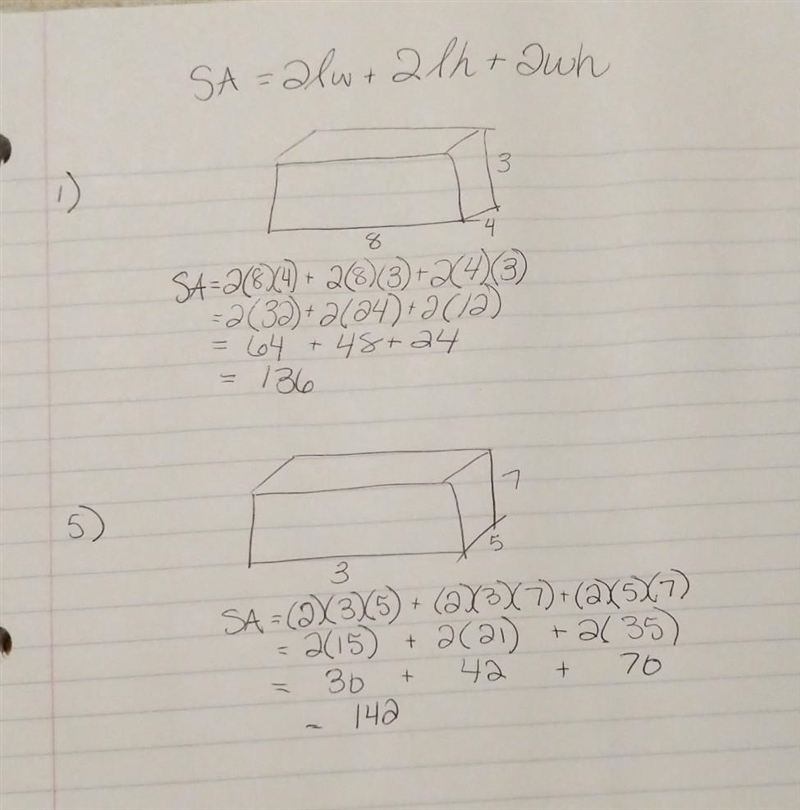 SA = 2lw + 2lh + 2wh
1)
3
4
8
SA = 2(8)(4) + 2(8)(3) + 2(4)(3)
= 2(32) + 2(24) + 2(12)
= 64 + 48 + 24
= 136
5)
7
5
3
SA = (2)(3)(5) + (2)(3)(7) + (2)(5)(7)
= 2(15) + 2(21) + 2(35)
= 30 + 42 + 70
= 142